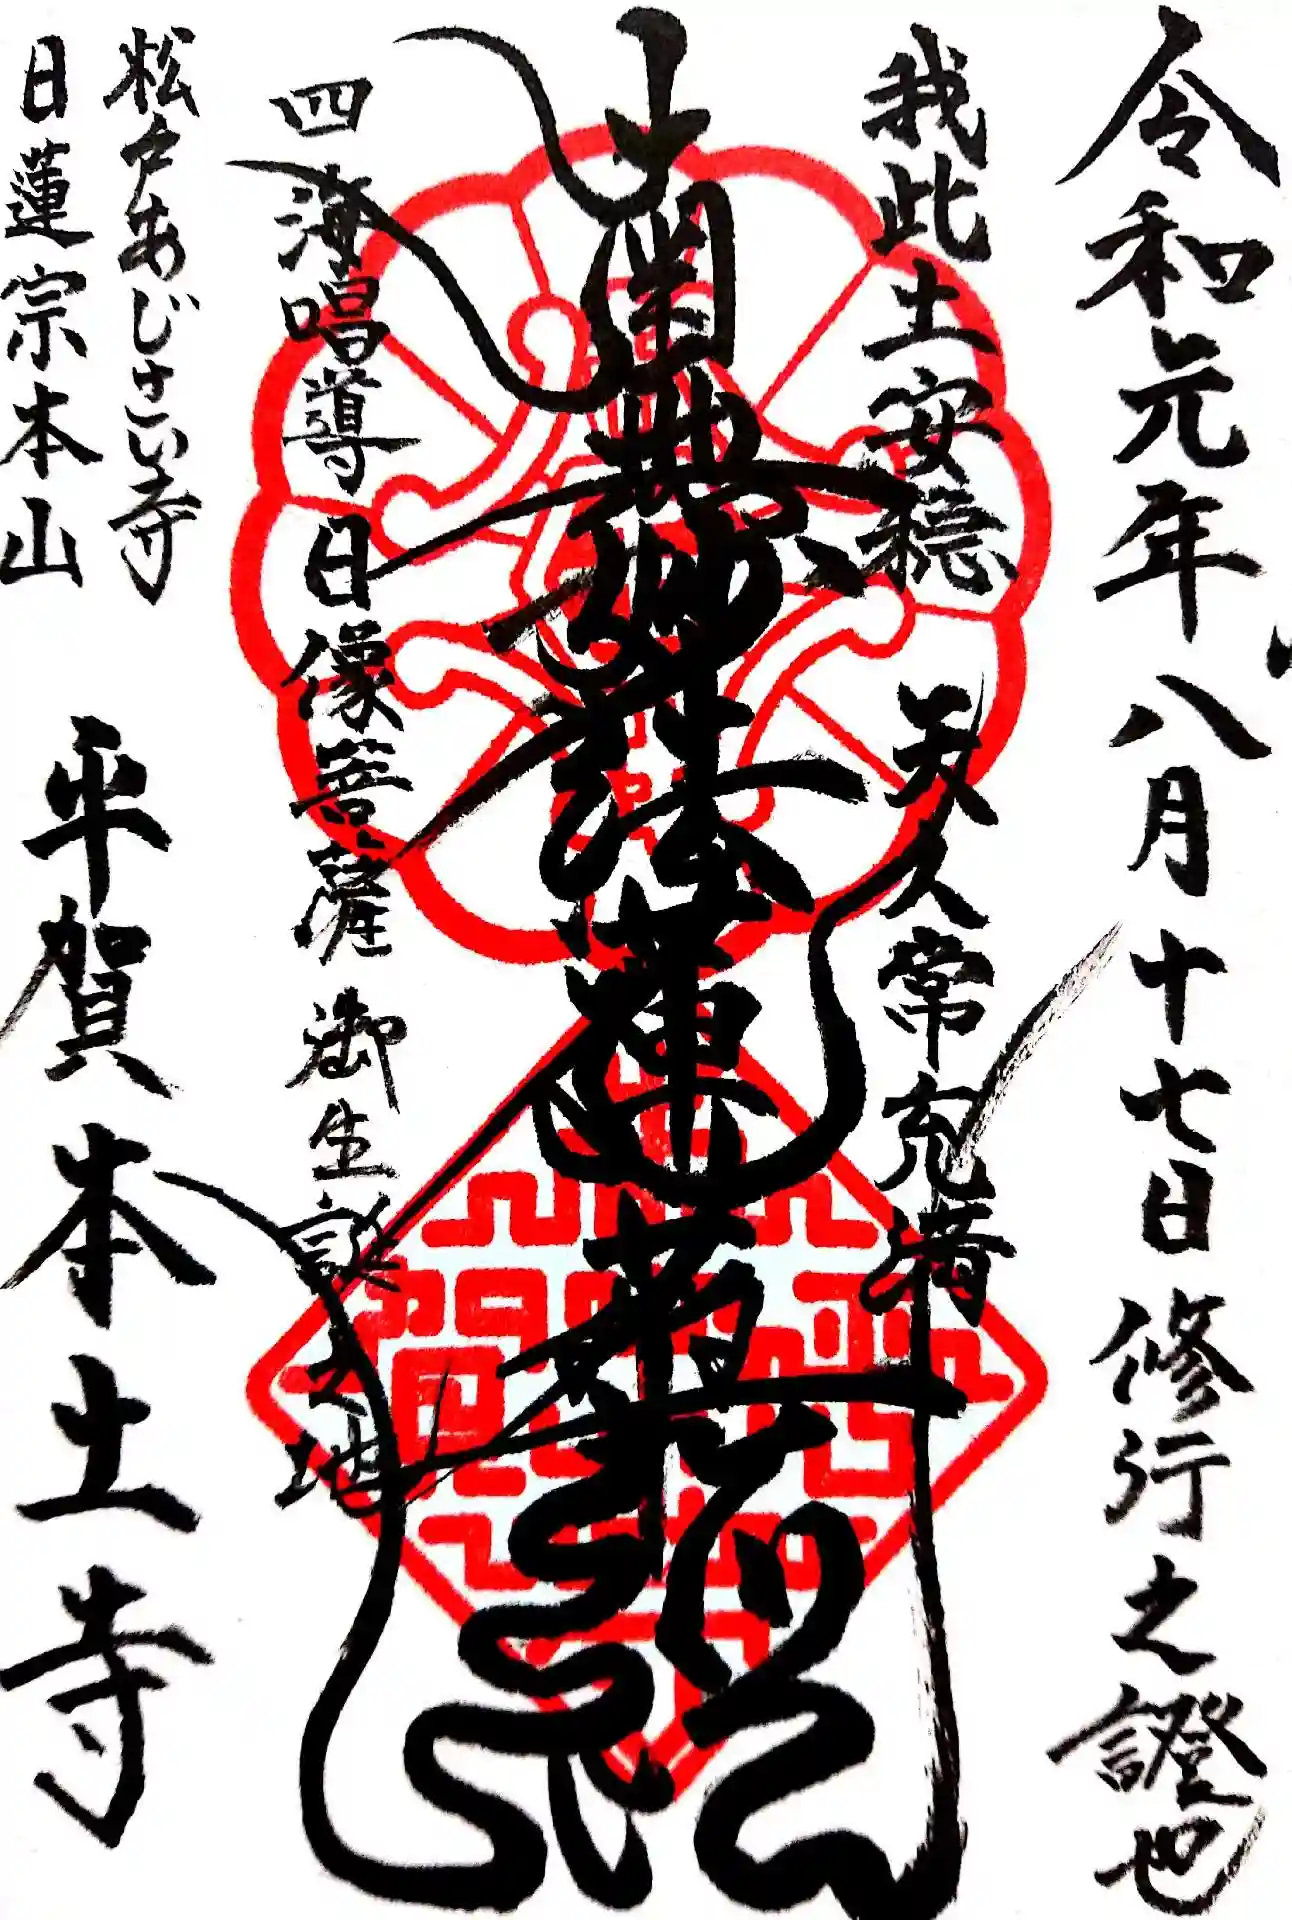 令和元年八月十七日修行之證也
我此土安穏 天人常充満
南無妙法蓮華経
四海唱導 日像菩薩 御生誕之地
松戸あじさい寺
日蓮宗本山
平賀本土寺